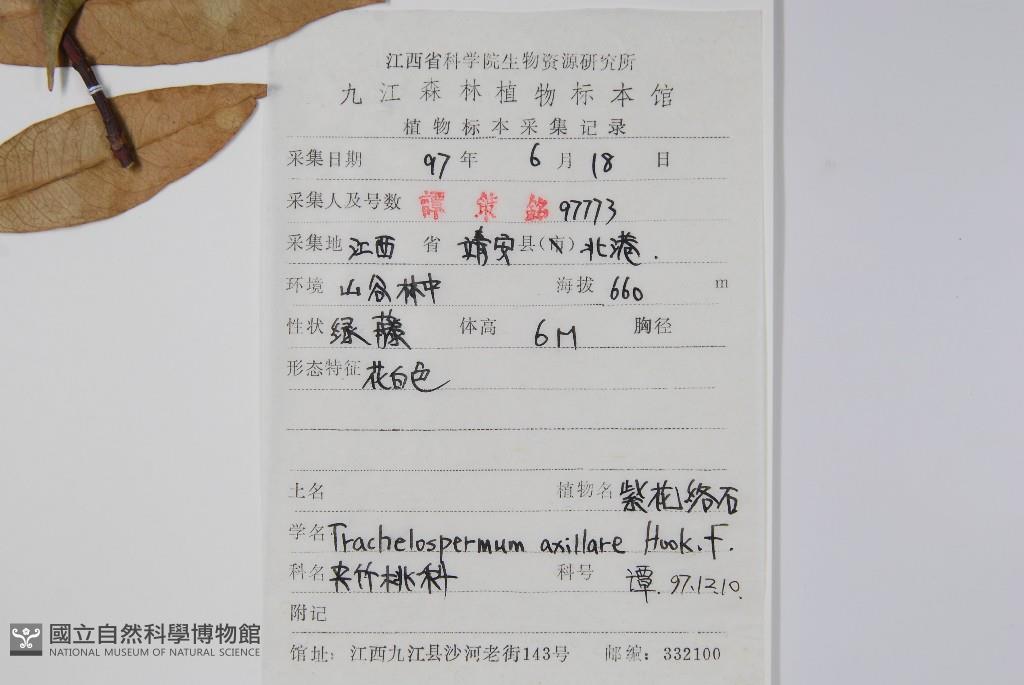 江西省科学院生物资源研究所
九江森林植物标本馆
植物标本采集记录
采集日期 97 年 6 月 18 日
采集人及号数 譚策銘 97773
采集地 江西 省 靖安 县(市) 北港.
环境 山谷林中 海拔 660 m
性状 绿藤 体高 6M 胸径
形态特征 花白色
土名 植物名 紫花络石
学名 Trachelospermum axillare Hook.f.
科名 夹竹桃科 科号 谭.97.12.10.
附记
馆址: 江西九江县沙河老街143号 邮编: 332100
國立自然科學博物館
NATIONAL MUSEUM OF NATURAL SCIENCE